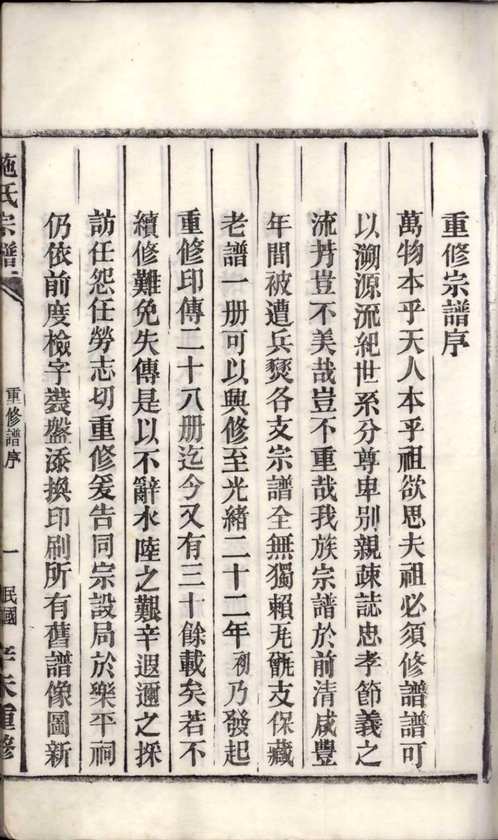 重修宗譜序
萬物本乎天人本乎祖欲思夫祖必須修譜譜可
以溯源流紀世系分尊卑別親疎誌忠孝節義之
流芳豈不美哉豈不重哉我族宗譜於前清咸豐
年間被遭兵燹各支宗譜全無獨賴旡甑支保藏
老譜一册可以興修至光緒二十二年初乃發起
重修印傳二十八册迄今又有三十餘載矣若不
續修難免失傳是以不辭水陸之艱辛遐邇之採
訪任怨任勞志切重修爰告同宗設局於樂平祠
仍依前度檢字裝盤添換印刷所有舊譜像圖新
施氏宗譜
重修譜序
一
民國辛未重修